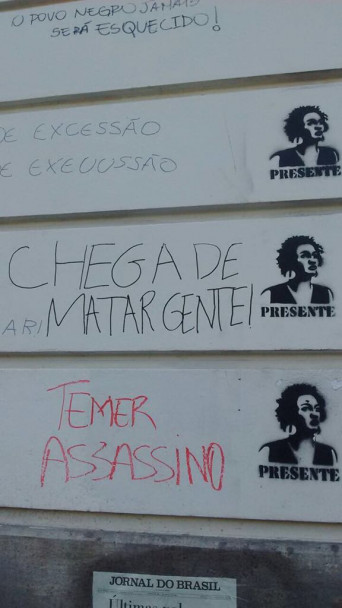 O POVO NEGRO JAMAIS
SERÁ ESQUECIDO!
DE EXCESSÃO
DE EXECUSSÃO
PRESENTE
CHEGA DE
MARI MATAR GENTE!
PRESENTE
TEMER
ASSASSINO
PRESENTE
JORNAL DO BRASIL